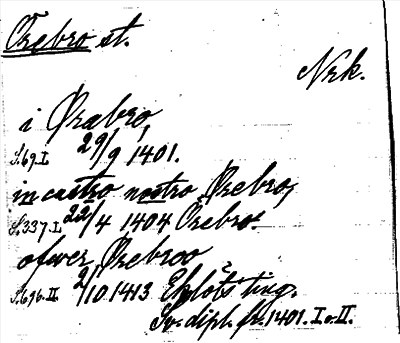 Örebro st.
Nrk.
i Ørabro,
S.69.I. 29/9 1401.
in castro nostro Ørebro,
S.337.I. 22/4 1404 Örebro.
ofwer Ørebroo
S.696.II. 2/10 1413 ting.
Sv. dipl. fr. 1401. I o. II.